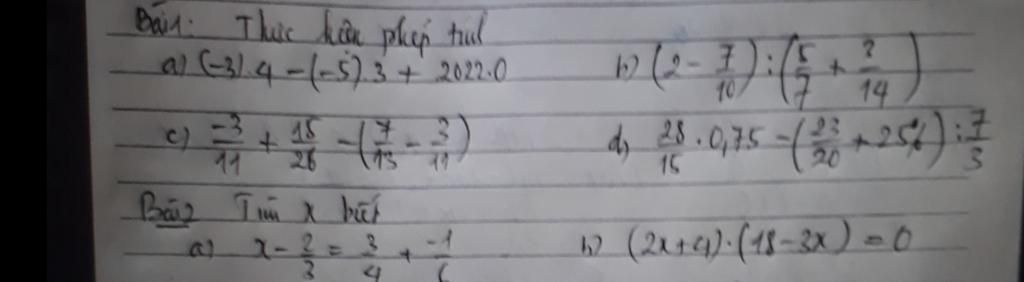 Bài 1: Thực hiện phép tính
a) (-3).4 - (-5).3 + 2022.0 b) (2 - 7/10) : (5/7 + 3/14)
c) -3/11 + 15/26 - (7/13 - 3/11) d) 28/15 . 0,75 - (23/20 + 25%) : 7/3
Bài 2 Tìm x biết
a) x - 2/3 = 3/4 + -1/6 b) (2x+4).(18-3x) = 0